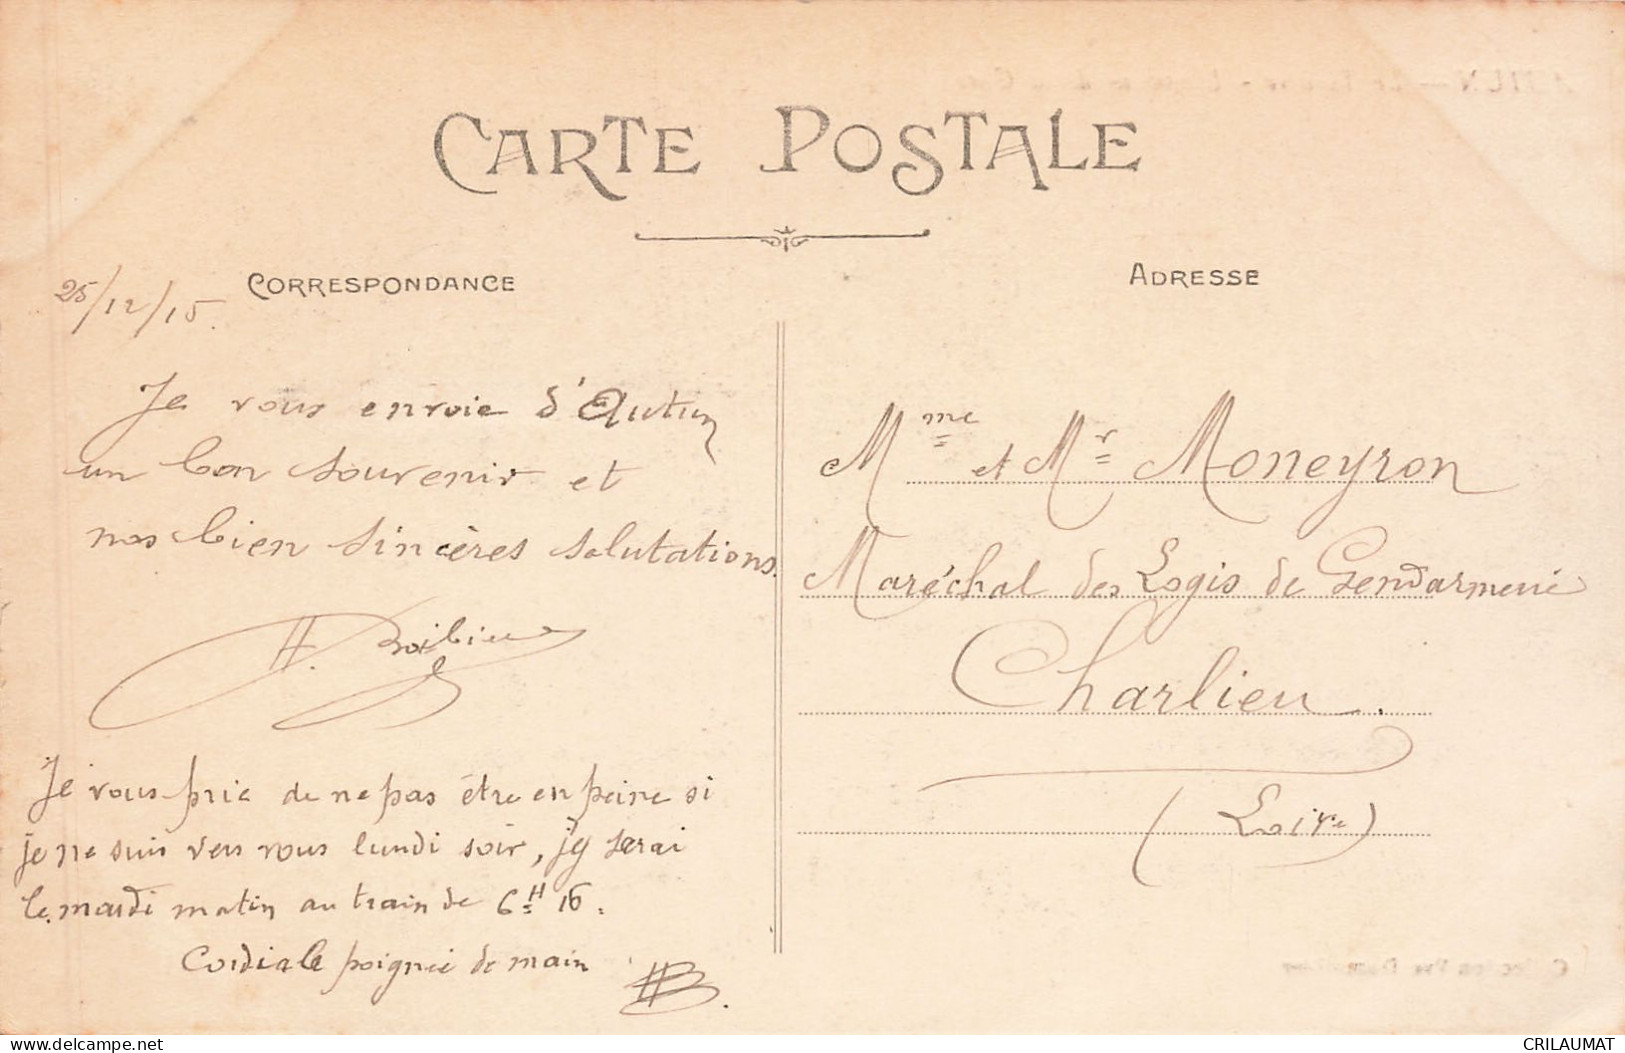 CARTE POSTALE
CORRESPONDANCE
ADRESSE
25/12/15.
Je vous envoie d'Autun
un bon souvenir et
nos bien sincères salutations.
H.
Je vous prie de ne pas être en peine si
je ne suis vers vous lundi soir, j'y serai
le mardi matin au train de 6H 16.
Cordiale poignée de main
HB.
Mme et Mr Moneyron
Maréchal des Logis de Gendarmerie
Charlieu.
(Loire)
delcampe.net
CRILAUMAT